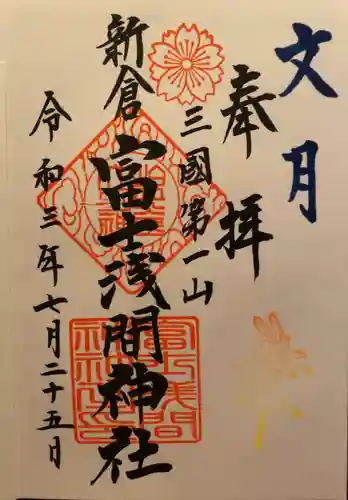 文月
奉拝
三國第一山
新倉富士浅間神社
令和三年七月二十五日